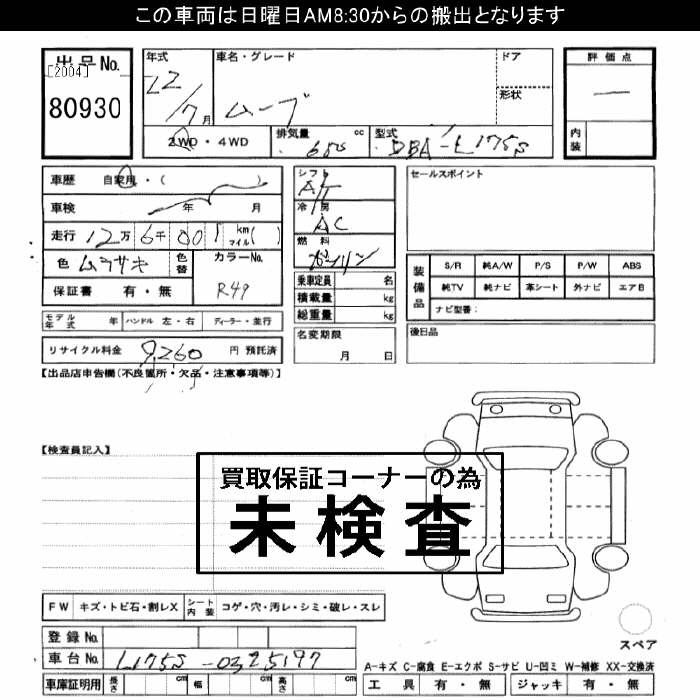 この車両は日曜日AM8:30からの搬出となります
出品No.
[2004]
80930
年式
22/7月
車名・グレード
ムーブ
ドア
形状
評価点
内装
2WD・4WD
排気量 cc
型式
DBA-L175S
車歴 自家用・( )
車検 年 月
走行 12万 6千 001 km マイル( )
色 ムラサキ
色替
カラーNo.
R49
保証書 有・無
シフト
AT
冷房
AC
燃料
ガソリン
乗車定員 名
積載量 kg
総重量 kg
セールスポイント
装備品
S/R 純A/W P/S P/W ABS
純TV 純ナビ 革シート 外ナビ エアB
ナビ型番:
モデル年式 年 ハンドル 左・右 ディーラー・並行
リサイクル料金 9,260 円 預託済
名変期限
月 日
後日品
【出品店申告欄(不良箇所・欠品・注意事項等)】
【検査員記入】
買取保証コーナーの為
未検査
FW キズ・トビ石・割レX
シート内装 コゲ・穴・汚レ・シミ・破レ・スレ
登録No.
車台No. L175S-0325197
車庫証明用 長さ cm 幅 cm 高さ cm
スペア
A-キズ C-腐食 E-エクボ S-サビ U-凹ミ W-補修 XX-交換済
工具 有・無 ジャッキ 有・無